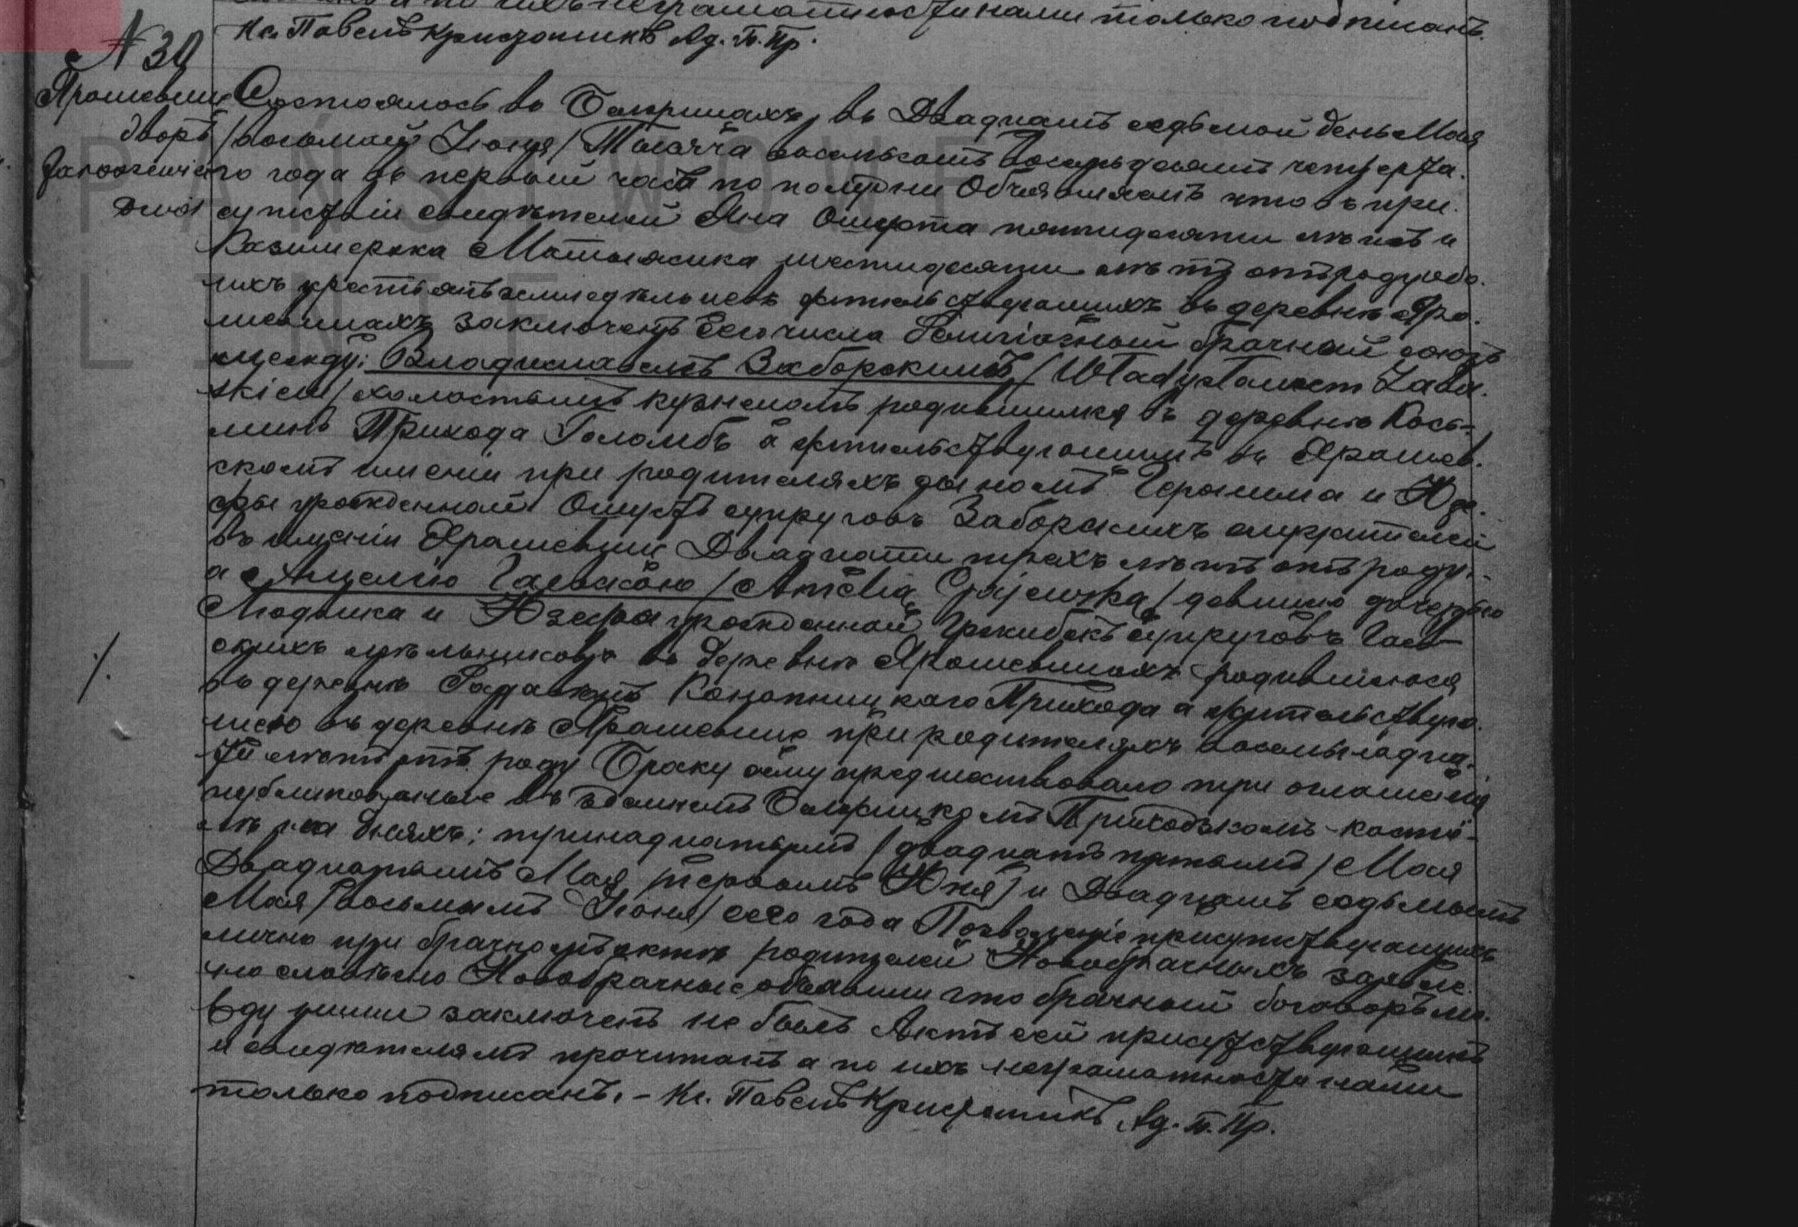 только подписанъ.
Кс. Павелъ Кристофикъ Ад. П. Пр.
№ 39
Ярошевице
дворъ
Состоялось въ Бабринахъ, въ Двадцать седьмой день Мая
/восьмый Іюня/ Тысяча восемьсотъ восемьдесятъ четверта
го года въ первый часъ по полудни Объявляемъ что въ при
сутствіи свидѣтелей Яна Ошуста пятидесяти лѣтъ и
Казимержа шестидесяти лѣтъ отъ роду обо
ихъ крестьянъ земледѣльцевъ жительствующихъ въ деревнѣ Яро
шевицахъ заключенъ сего числа Религіозный брачный союзъ
между: Владиславомъ Заборскимъ /Władysławem Zabor
skim/ холостымъ кузнецомъ родившимся въ деревнѣ Кось
минъ Прихода Голомбъ а жительствующимъ въ Ярошев
скомъ имѣніи при родителяхъ сыномъ Геронима и Юзе
фы урожденной Ошустъ супруговъ Заборскихъ служителей
въ имѣніи Ярошевице Двадцати трехъ лѣтъ отъ роду
а Амелією Гаевскою /Amelią Gajewską/ девицею дочерью
Людвика и Юзефы урожденной Гржибекъ супруговъ Гаев
скихъ мѣльниковъ въ деревнѣ Ярошевицахъ родившеюся
въ деревнѣ Радавчикъ Конопницкаго Прихода а жительствую
щею въ деревнѣ Ярошевице при родителяхъ восемнадца
ти лѣтъ отъ роду Браку сему предшествовало три оглашенія
публикованные въ здешнемъ Приходскомъ костё
лѣ на дняхъ: тринадцатымъ /двадцать пятымъ/ Мая
Двадцатымъ Мая /первымъ Юня/ и Двадцать седьмымъ
Мая /восьмымъ Іюня/ сего года Позволеніе присутствующихъ
лично при брачномъ актѣ родителей Новобрачныхъ заявле
но словѣсно Новобрачные объявили что брачный договоръ ме
жду ними заключенъ не былъ Актъ сей присутствующимъ
и свидѣтелямъ прочитанъ а по ихъ неграмотности нами
только подписанъ. – Кс. Павелъ Кристофикъ Ад. П. Пр.